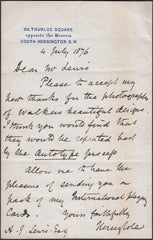 96, THURLOE SQUARE
opposite the Museum
SOUTH KENSINGTON S.W.
4 July 1876
Dear Mr Lewis
Please to accept my
new thanks for the photographs
of Walkers beautiful designs
I think you would find that
they would be repeated best
by the Autotype process
Allow me to have the
pleasure of sending you a
pack of my International playing
Cards.
Yours faithfully
Henry Cole
A. J. Lewis Esq